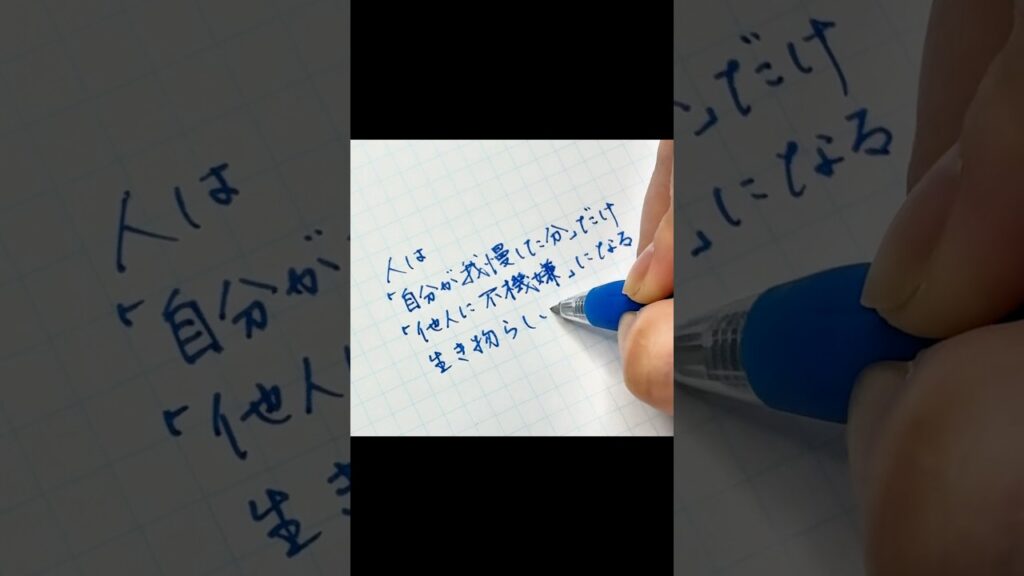 人は
「自分が我慢した分」だけ
「他人に不機嫌」になる
生き物らしい